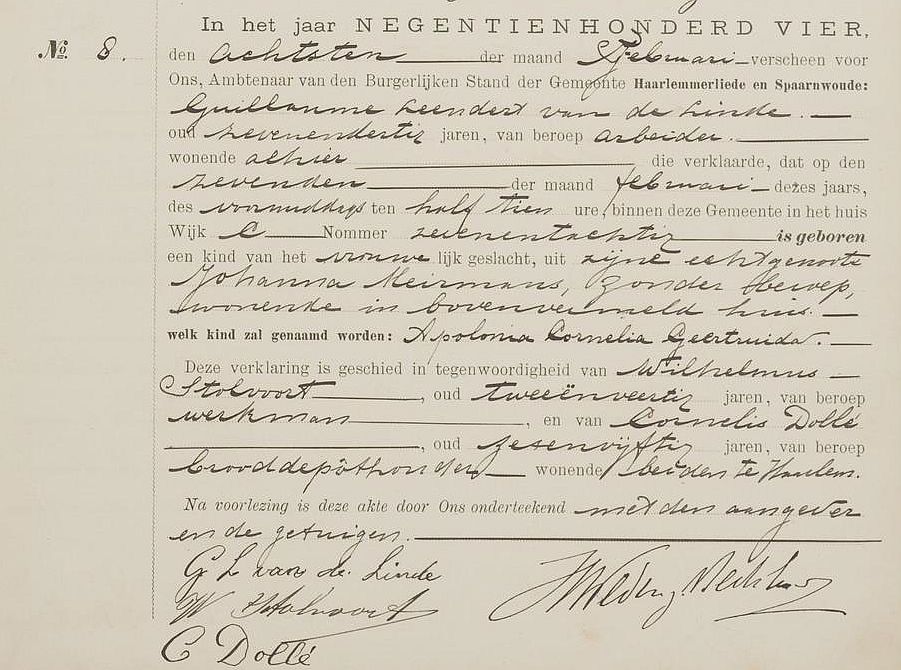 In het jaar NEGENTIENHONDERD VIER,
No. 8. den achtsten der maand Februari verscheen voor
Ons, Ambtenaar van den Burgerlijken Stand der Gemeente Haarlemmerliede en Spaarnwoude:
Guillaume Leendert van de Linde.
oud zevenendertig jaren, van beroep arbeider.
wonende alhier die verklaarde, dat op den
zevenden der maand februari dezes jaars,
des voormiddags ten half tien ure, binnen deze Gemeente in het huis
Wijk C Nommer zevenentachtig is geboren
een kind van het vrouwelijk geslacht, uit zijne echtgenoote
Johanna Meirmans, zonder beroep,
wonende in bovenvermeld huis.
welk kind zal genaamd worden: Apolonia Cornelia Geertruida.
Deze verklaring is geschied in tegenwoordigheid van Wilhelmus
Stolvoort, oud tweeënveertig jaren, van beroep
werkman, en van Cornelis Dollé
, oud zesenvijftig jaren, van beroep
brooddepôthouder wonende beiden te Haarlem.
Na voorlezing is deze akte door Ons onderteekend met den aangever
en de getuigen.
G L van de Linde
W Stolvoort
C Dollé